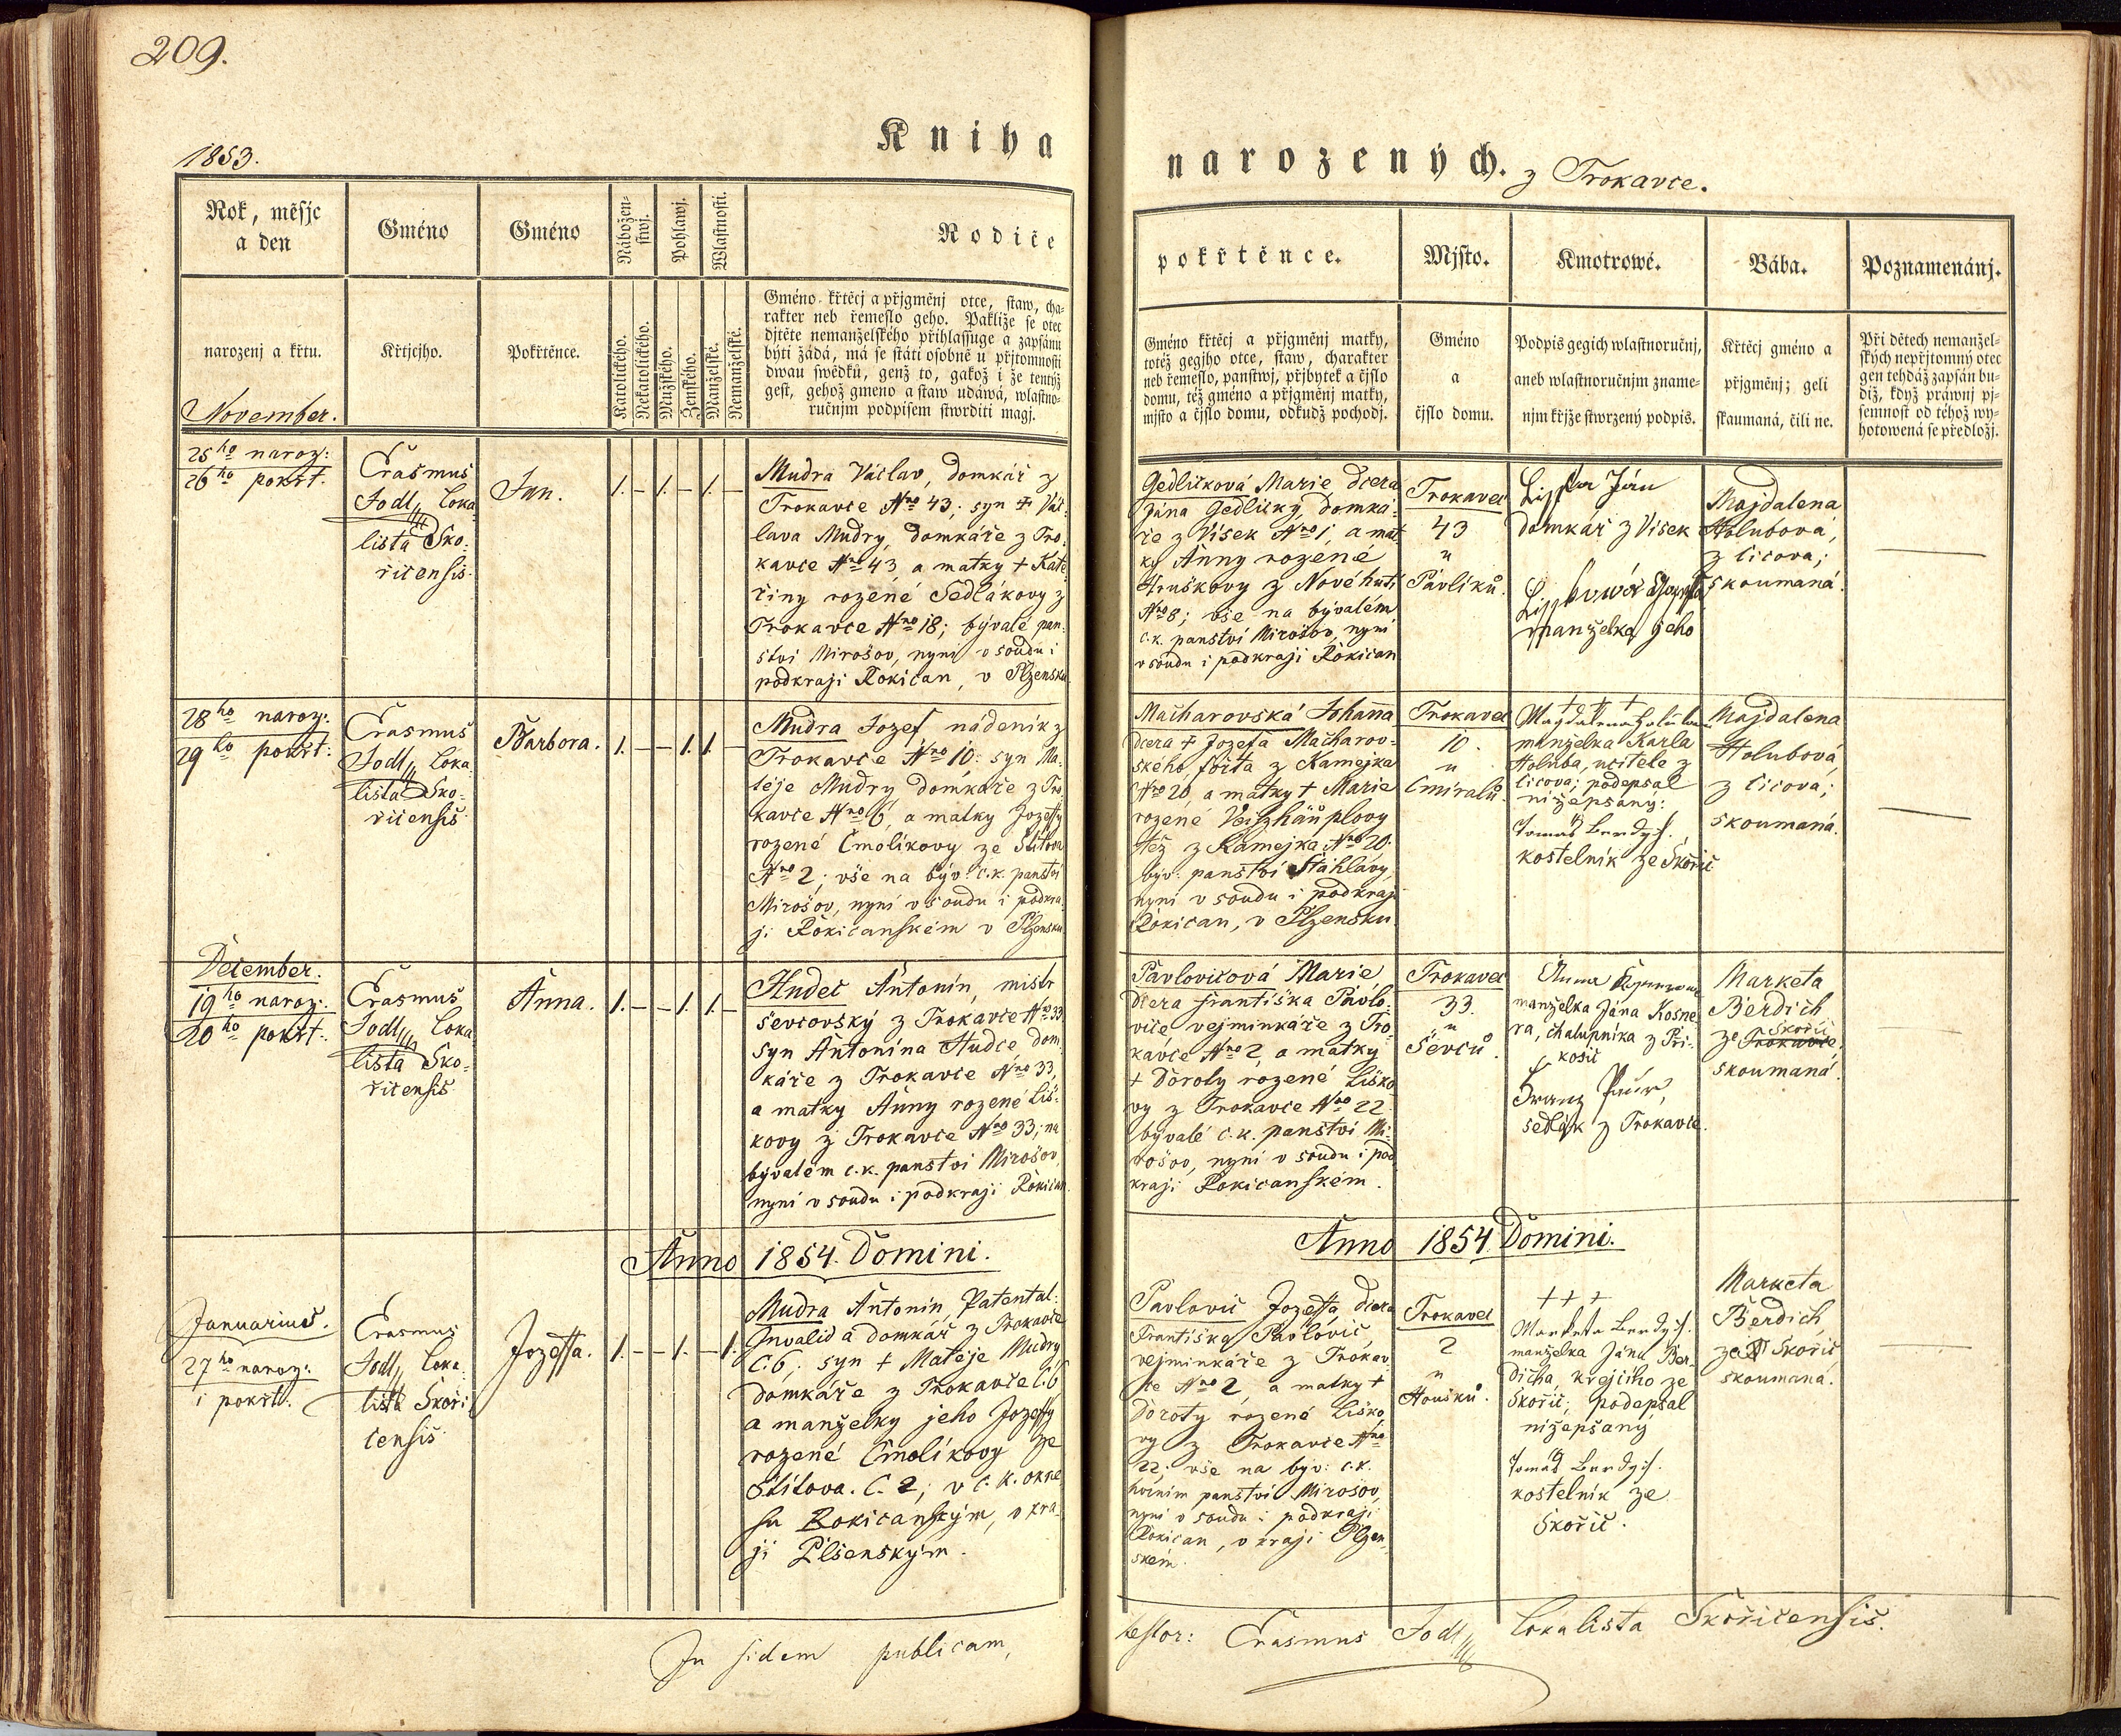 209.
Kniha
narozených. z Trokavce.
1853.
Rok, měsjc
a den
Gméno
Gméno
Nábožen-
stwj.
Pohlawj.
Wlastnosti.
Rodiče
pokřtěnce.
Mjsto.
Kmotrowé.
Bába.
Poznamenánj.
narozenj a křtu.
Křtjcjho.
Pokřtěnce.
Katolického.
Nekatolického.
Mužského.
Ženského.
Manželské.
Nemanželské.
Gméno křtěcj a přjgměnj otce, staw, cha-
rakter neb řemeslo geho. Pakliže se otec
djtěte nemanželského přihlassuge a zapsánu
býti žádá, má se státi osobně u přjtomnosti
dwau swědků, genž to, gakož i že tentýž
gest, gehož gmeno a staw udáwá, wlastno-
ručnjm podpisem stwrditi magj.
Gméno křtěcj a přjgměnj matky,
totéž gegjho otce, staw, charakter
neb řemeslo, panstwj, přjbytek a čjslo
domu, též gméno a přjgměnj matky,
mjsto a čjslo domu, odkudž pochodj.
Gméno
a
čjslo domu.
Podpis gegich wlastnoručnj,
aneb wlastnoručnjm zname-
njm křjže stwrzený podpis.
Křtěcj gméno a
přjgměnj; geli
skaumaná, čili ne.
Při dětech nemanžel-
ských nepřjtomný otec
gen tehdáž zapsán bu-
diž, když práwnj pj-
semnost od téhož wy-
hotowená se předložj.
November.
25ho naroz:
26ho pokřt.
Erasmus
Jodl, Loka-
lista Sko-
řicensis.
Jan.
1. – 1. – 1. –
Mudra Václav, domkář z
Trokavce Nro 43; syn + Vác-
lava Mudry, domkáře z Tro-
kavce Nro 43, a matky + Kate-
řiny rozené Sedlákovy z
Trokavce Nro 18; bývalé pan-
ství Mirošov, nyní v soudu i
podkraji Rokican, v Plzensku
Gedličková Marie dcera
Jána Gedličky, domká-
ře z Vísek Nro 1, a mat-
ky Anny rozené
Hruškovy z Novéhuti
Nro 8; vše na bývalém
c.k. panství Mirošov, nyní
v soudu i podkraji Rokican
Trokavec
43
u
Pavlíků.
Ján
domkář z Visek
manželka jeho
Majdalena
Holubová,
z Čičova;
skoumaná.
28ho naroz:
29ho pokřt:
Erasmus
Jodl, Loka-
lista Sko-
řicensis
Barbora.
1. – – 1. 1. –
Mudra Jozef, nádeník z
Trokavce Nro 10: syn Ma-
těje Mudry domkáře z Tro-
kavce Nro 6, a matky Jozeffy
rozené Čmolíkovy ze Štítova
Nro 2; vše na býv: c.k. panství
Mirošov, nyní v soudu i podkra-
ji Rokičanském v Plzensku
Macharovská Johanna
dcera + Jozefa Macharov-
ského, fořta z Kamejka
Nro 20, a matky + Marie
rozené Veizhäuplovy
též z Kamejka Nro 20.
býv: panství Štáhlavy,
nyní v soudu i podkraji
Rokican, v Plzensku
Trokavec
10.
u
Čmiralů.
+ + +
Magdalena Holubova
manželka Karla
Holuba, učitele z
Čičova; podepsal
nižepsaný:
Tomas Berdych.
kostelník ze Skořic
Majdalena
Holubová,
z Čičova;
skoumaná.
December.
19ho naroz:
20ho pokřt:
Erasmus
Jodl, Loka-
lista Sko-
řicensis
Anna.
1. – – 1. 1. –
Hudec Antonín, mistr
ševcovský z Trokavce Nro 33
syn Antonína Hudce dom-
káře z Trokavce Nro 33,
a matky Anny rozené Liš-
kovy z Trokavce Nro 33; na
bývalém c.k. panství Mirošov,
nyní v soudu i podkraji Rokican.
Pavlovicová Marie
dcera Františka Pavlo-
viče vejminkáře z Tro-
kavce Nro 2, a matky
+ Doroty rozené Liško-
vy z Trokavce Nro 22.
bývalé c.k. panství Mi-
rošov, nyní v soudu i pod-
kraji Rokicanském.
Trokavec
33.
u
Ševců.
Anna
manželka Jána Kosne-
ra, chalupníka z Při-
kosic
Franz Paur,
sedlák z Trokavce.
Marketa
Berdich
ze Skořic
Trokavce,
skoumaná.
Anno 1854. Domini.
Anno 1854. Domini.
Januarius.
27ho naroz:
i pokřt.
Erasmus
Jodl, Loka-
lista Skoři-
censis
Jozeffa.
1. – – 1. – 1.
Mudra Antonín, Patental-
Invalid a domkář z Trokavce
č. 6; syn + Matěje Mudry
domkáře z Trokavce č. 6,
a manželky jeho Jozeffy
rozené Čmolíkovy ze
Štítova. Č. 2; v c. k. okre-
su Rokicanským, v kra-
ji Pilsenským.
Pavlovič Jozeffa, dcera
Františka Pavlovič,
vejminkáře z Trokav-
ce Nro 2, a matky +
Doroty rozené Liško-
vy z Trokavce Nro
22; vše na býv: c.k.
horním panství Mirošov,
nyní v soudu i podkraji
Rokican, v kraji Plzen-
ském.
Trokavec
2
u
Houšků.
+ + +
Marketa Berdych.
manželka Jána Ber-
dicha, krejčího ze
Skořic; podepsal
nižepsaný
Tomas Berdych.
kostelník ze
Skořic.
Marketa
Berdich,
ze Skořic
skoumaná.
In fidem publicam,
testor: Erasmus Jodl, Lokalista Skořicensis.